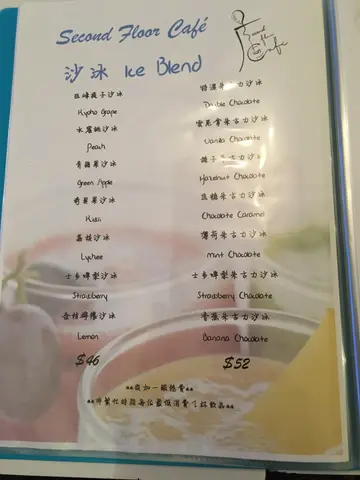 Second Floor Café
Second Floor Café
沙冰 Ice Blend
巨峰提子沙冰
Kyoho Grape
水蜜桃沙冰
Peach
青蘋果沙冰
Green Apple
奇異果沙冰
Kiwi
荔枝沙冰
Lychee
士多啤梨沙冰
Strawberry
沙冰
Lemon
$46
特濃朱古力沙冰
Double Chocolate
雲尼拿朱古力沙冰
Vanilla Chocolate
榛子朱古力沙冰
Hazelnut Chocolate
焦糖朱古力沙冰
Chocolate Caramel
薄荷朱古力沙冰
Mint Chocolate
士多啤梨朱古力沙冰
Strawberry Chocolate
香蕉朱古力沙冰
Banana Chocolate
$52
**設加一服務費**
**繁忙時段每位最低消費了杯飲品**